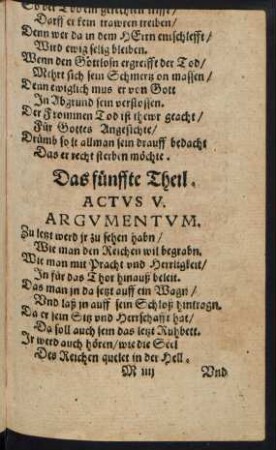 So der Tod ein gerechten trifft/
Darff er kein trawren treiben/
Denn wer da in dem HErrn entschlefft/
Wird ewig selig bleiben.
Wenn den Gottlosn ergreifft der Tod/
Mehrt sich sein Schmertz on massen/
Denn ewiglich mus er von Gott
In Abgrund sein verstossen.
Der Frommen Tod ist thewr geacht/
Für Gottes Angesichte/
Drümb solt allman sein drauff bedacht
Das er recht sterben möchte.
Das fünffte Theil.
ACTVS V.
ARGVMENTVM.
Zu letzt werd jr zu sehen habn/
Wie man den Reichen wil begrabn.
Wie man mit Pracht vnd Herrligkeit/
Jn für das Thor hinauß beleit.
Das man jn da setzt auff ein Wagn/
Vnd laß jn auff sein Schloß hintragn.
Da er sein Sitz vnd Herrschafft hat/
Da soll auch sein das letzt Ruhbett.
Jr werd auch hören/ wie die Seel
Des Reichen quelet in der Hell.
M iiij Vnd